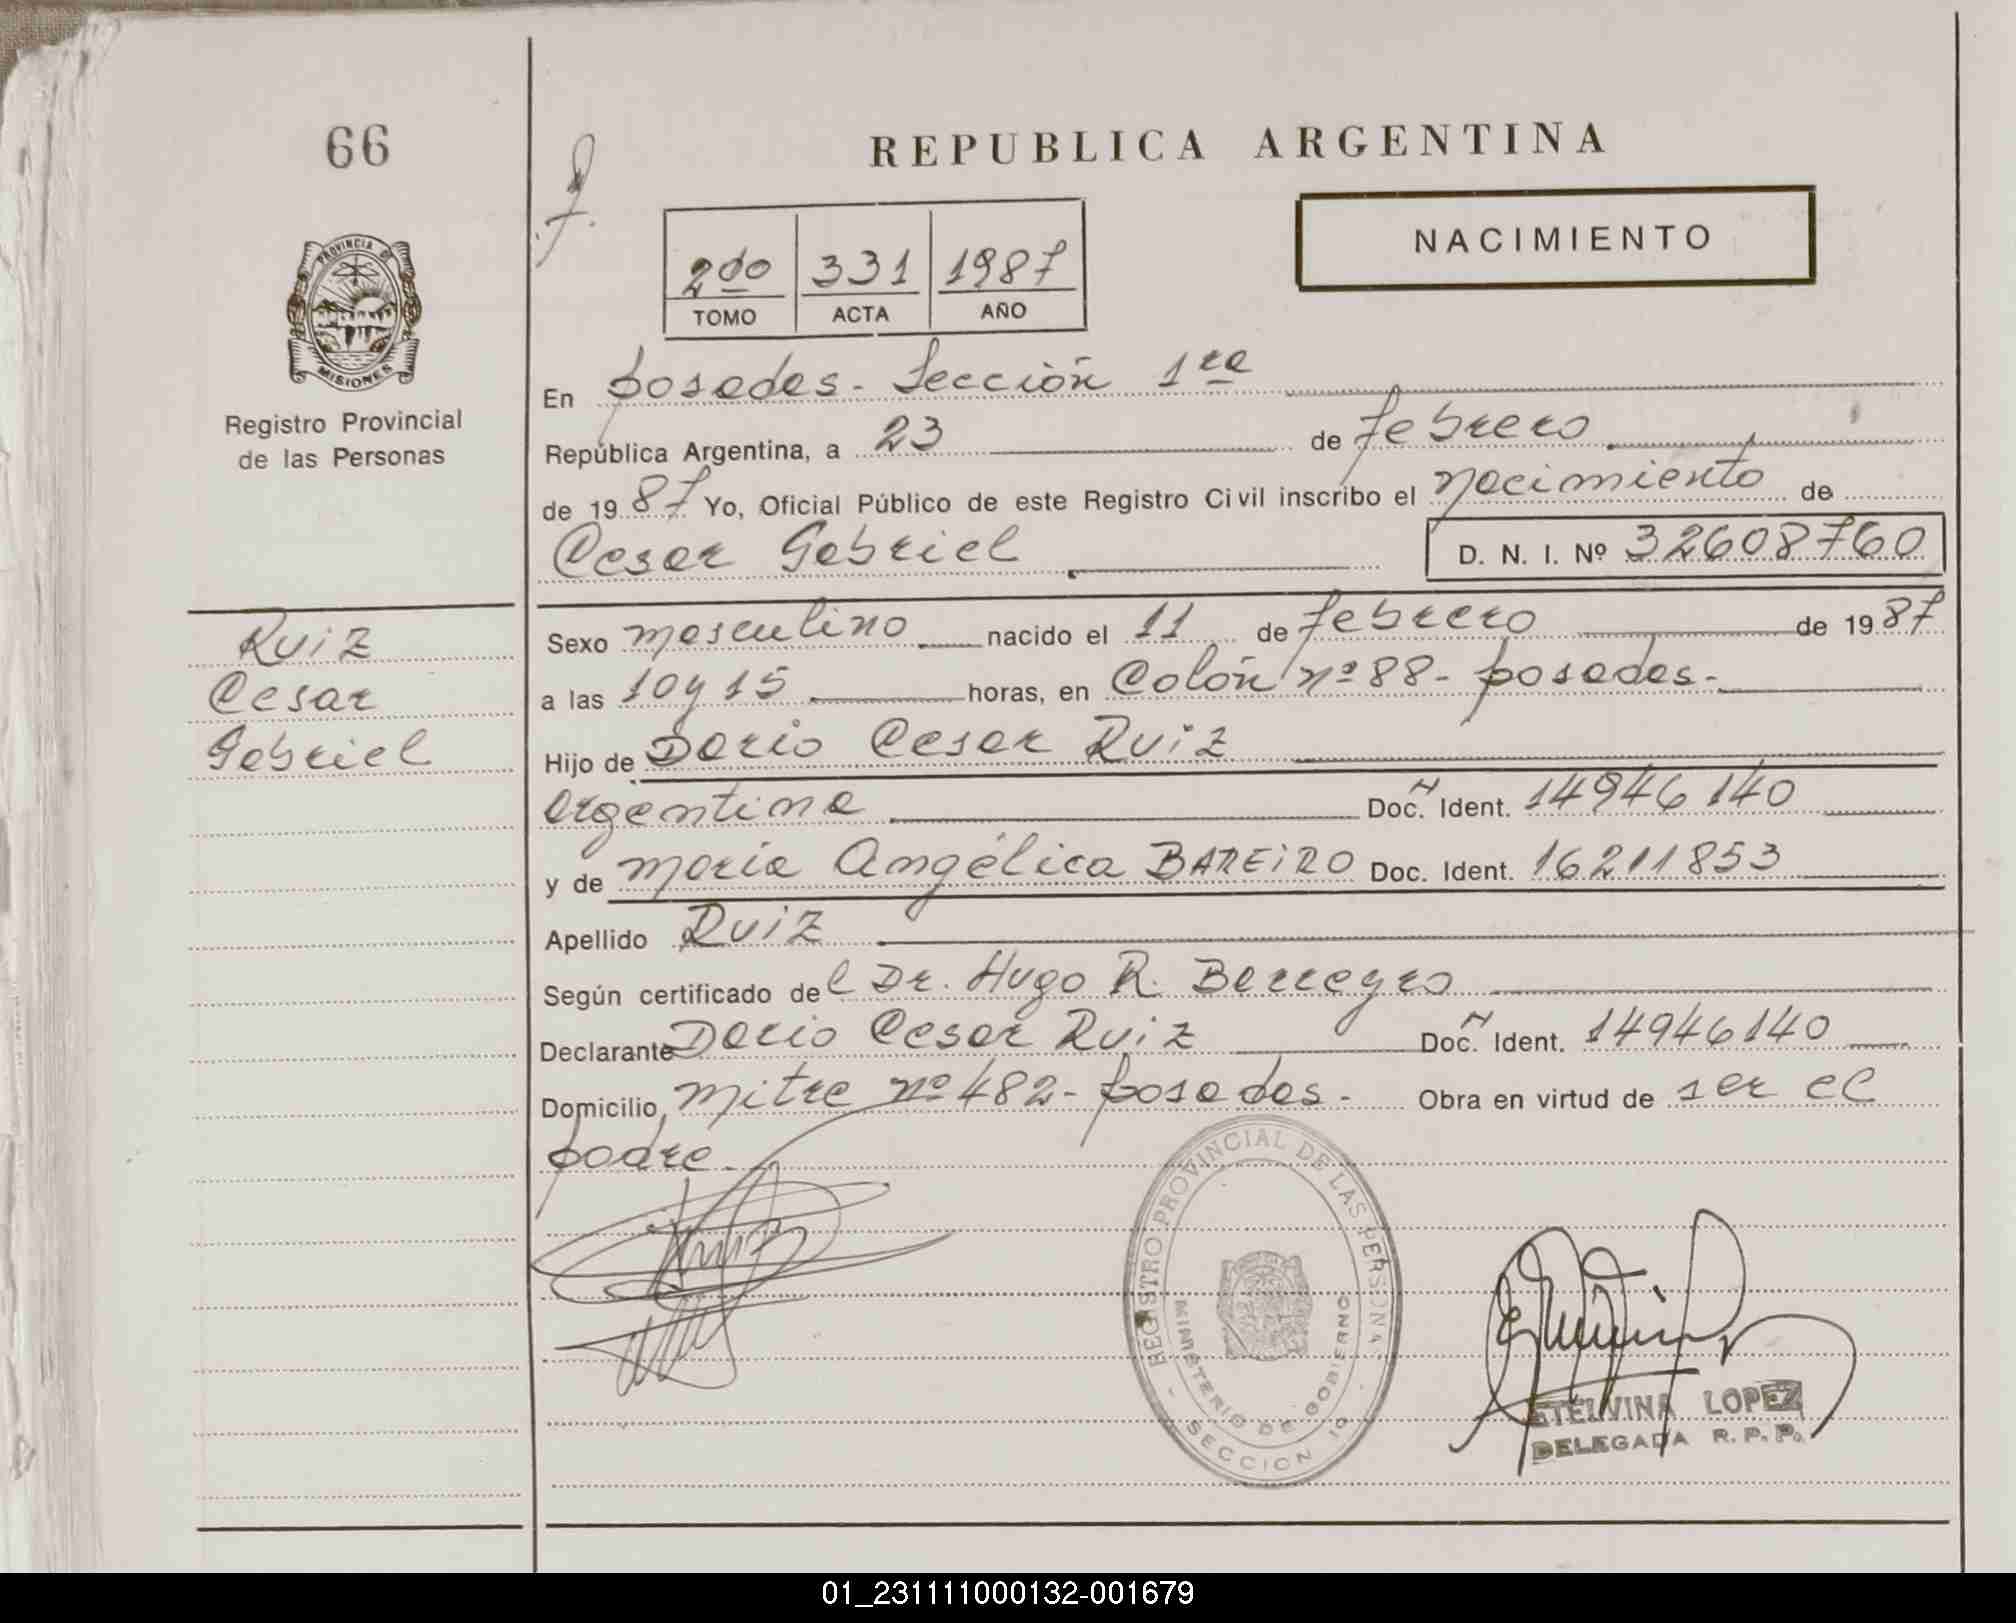 66
REPUBLICA ARGENTINA
NACIMIENTO
2do 331 1987
TOMO ACTA AÑO
PROVINCIA D
MISIONES
Registro Provincial
de las Personas
En Posadas - Sección 1ra
República Argentina, a 23 de febrero
de 1987 Yo, Oficial Público de este Registro Civil inscribo el nacimiento de
Cesar Gabriel D. N. I. Nº 32608760
Ruiz
Cesar
Gabriel
Sexo masculino nacido el 11 de febrero de 1987
a las 10 y 15 horas, en Colón nº 88 - Posadas -
Hijo de Dario Cesar Ruiz
Argentina Doc. N Ident. 14946140
y de María Angélica BAREIRO Doc. Ident. 16211853
Apellido Ruiz
Según certificado del Dr. Hugo R. Berregro
Declarante Dario Cesar Ruiz Doc. N Ident. 14946140
Domicilio, Mitre nº 482 - Posadas - Obra en virtud de ser el
padre -
REGISTRO PROVINCIAL DE LAS PERSONA
MINISTERIO DE GOBIERNO
- SECCION 1a -
STELVINA LOPEZ
DELEGADA R. P. P.
01_231111000132-001679